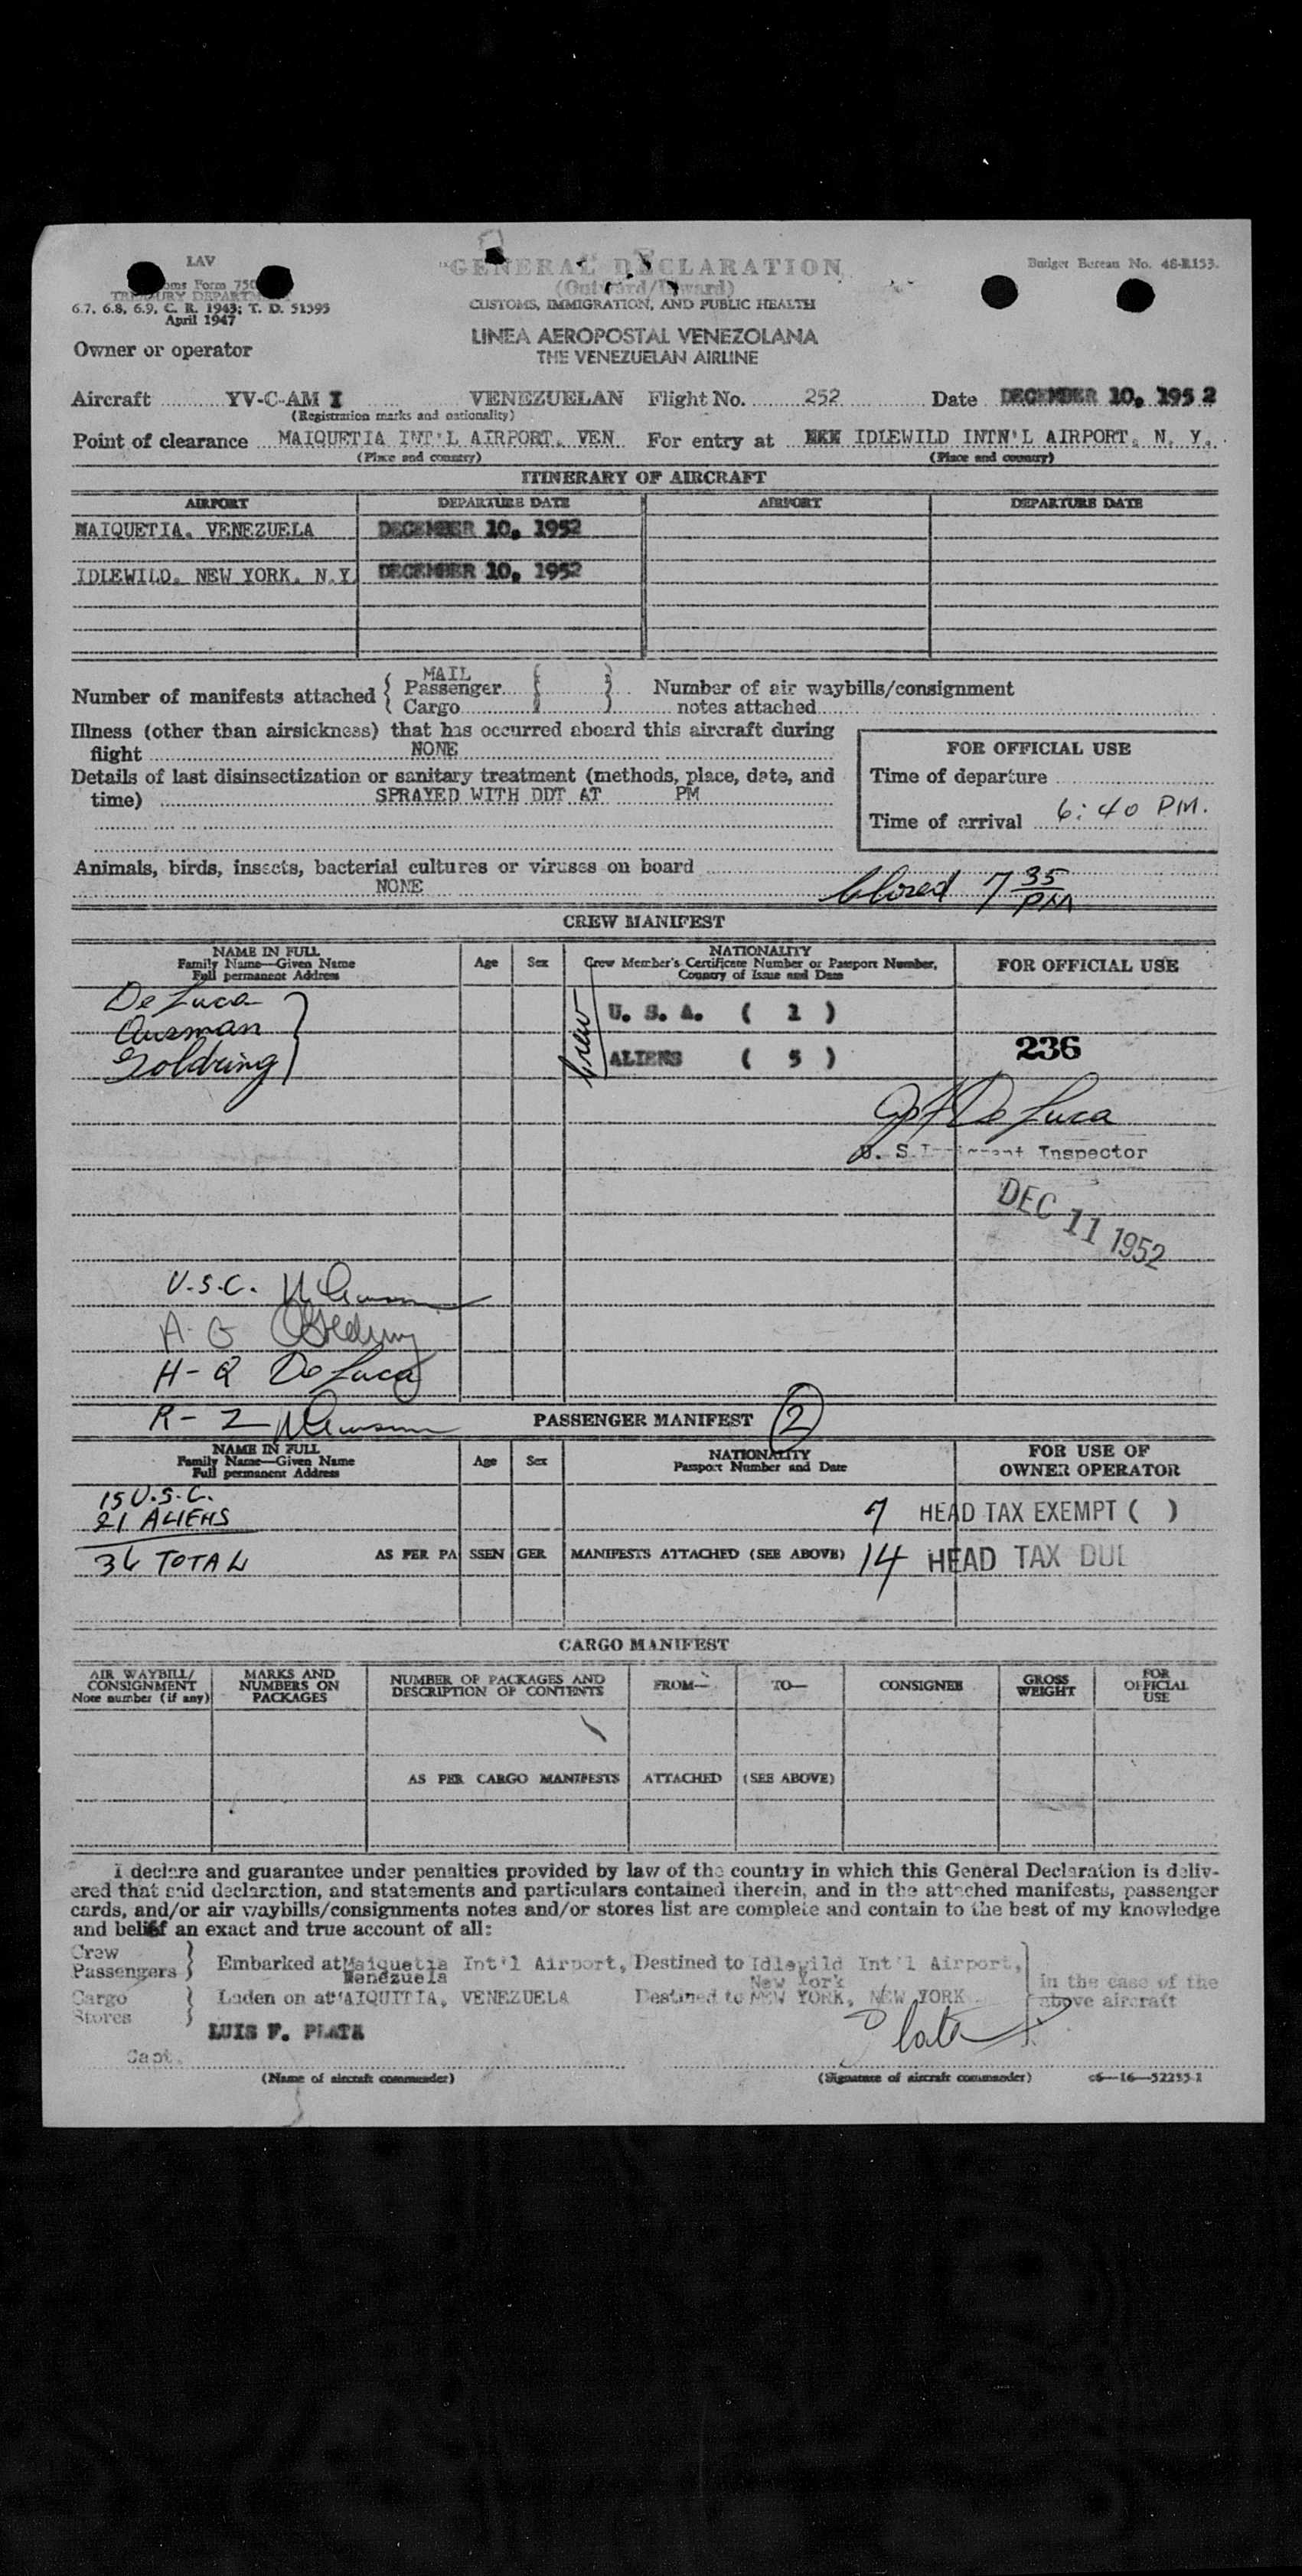 LAV
GENERAL DECLARATION
(Outward/Inward)
Budget Bureau No. 48-R153.
TREASURY DEPARTMENT
CUSTOMS, IMMIGRATION, AND PUBLIC HEALTH
6.7, 6.8, 6.9, C. R. 1943; T. D. 51595
April 1947
LINEA AEROPOSTAL VENEZOLANA
THE VENEZUELAN AIRLINE
Owner or operator
Aircraft YV-C-AM I VENEZUELAN Flight No. 252 Date DECEMBER 10, 1952
(Registration marks and nationality)
Point of clearance MAIQUETIA INT'L AIRPORT. VEN. For entry at IDLEWILD INTN'L AIRPORT. N. Y.
(Place and country) (Place and country)
ITINERARY OF AIRCRAFT
AIRPORT DEPARTURE DATE AIRPORT DEPARTURE DATE
MAIQUETIA. VENEZUELA DECEMBER 10, 1952
IDLEWILD. NEW YORK. N.Y. DECEMBER 10, 1952
MAIL
Number of manifests attached { Passenger { } Number of air waybills/consignment
Cargo notes attached
Illness (other than airsickness) that has occurred aboard this aircraft during
flight NONE
FOR OFFICIAL USE
Details of last disinsectization or sanitary treatment (methods, place, date, and
Time of departure
time) SPRAYED WITH DDT AT PM
Time of arrival 6:40 PM.
Animals, birds, insects, bacterial cultures or viruses on board
NONE
7 35 PM
CREW MANIFEST
NAME IN FULL
Family Name—Given Name
Full permanent Address
Age Sex
NATIONALITY
Crew Member's Certificate Number or Passport Number,
Country of Issue and Date
FOR OFFICIAL USE
De Luca
Ausman
Goldring
Crew
U. S. A. ( 1 )
ALIENS ( 5 )
236
De Luca
U. S. Inspector
DEC 11 1952
U.S.C.
A- G
H- Q De Luca
R- 2
PASSENGER MANIFEST 2
NAME IN FULL
Family Name—Given Name
Full permanent Address
Age Sex
NATIONALITY
Passport Number and Date
FOR USE OF
OWNER OPERATOR
15 U.S.C.
21 ALIENS
36 TOTAL
7 HEAD TAX EXEMPT ( )
AS PER PASSENGER MANIFESTS ATTACHED (SEE ABOVE) 14 HEAD TAX DUE
CARGO MANIFEST
AIR WAYBILL/
CONSIGNMENT
Note number (if any)
MARKS AND
NUMBERS ON
PACKAGES
NUMBER OF PACKAGES AND
DESCRIPTION OF CONTENTS
FROM— TO— CONSIGNEE
GROSS
WEIGHT
FOR
OFFICIAL
USE
AS PER CARGO MANIFESTS ATTACHED (SEE ABOVE)
I declare and guarantee under penalties provided by law of the country in which this General Declaration is deliv-
ered that said declaration, and statements and particulars contained therein, and in the attached manifests, passenger
cards, and/or air waybills/consignments notes and/or stores list are complete and contain to the best of my knowledge
and belief an exact and true account of all:
Crew
Passengers } Embarked at Maiquetia Int'l Airport, Destined to Idlewild Int'l Airport,
Venezuela New York
in the case of the
above aircraft
Cargo
Stores } Laden on at MAIQUITIA, VENEZUELA Destined to NEW YORK, NEW YORK
LUIS F. PLATA
Plata
Capt.
(Name of aircraft commander) (Signature of aircraft commander) c6—16—52255-1